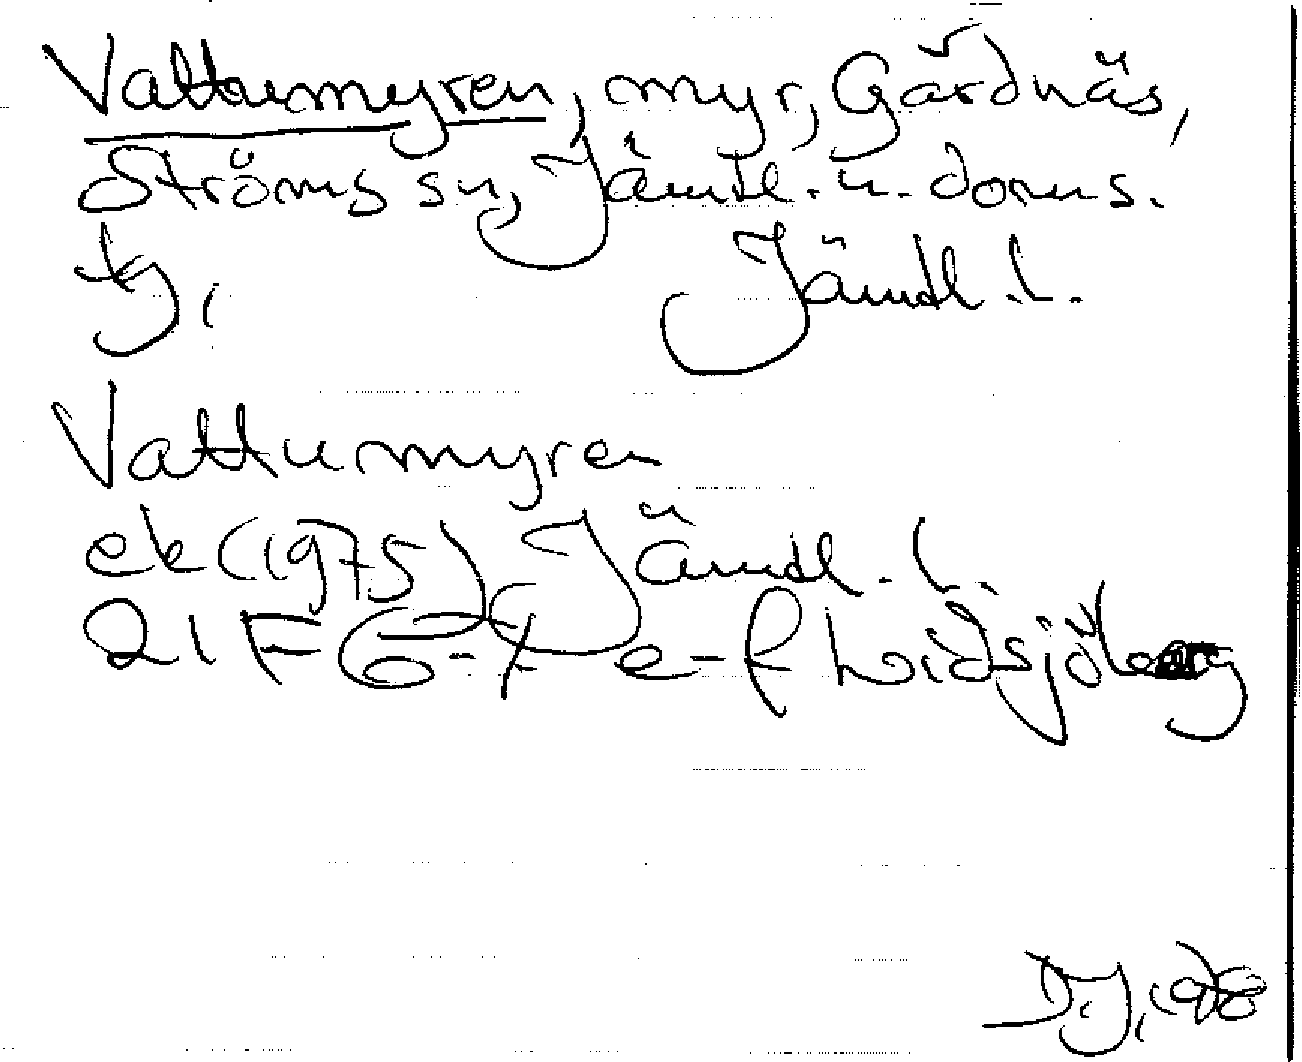 Vattumyren, myr, Gårdnäs,
Ströms sn, Jämtl. n. doms.
tg. Jämtl. l.
Vattumyren
ek (1975) Jämtl. l.
21F 6-7 e-f Lidsjöberg